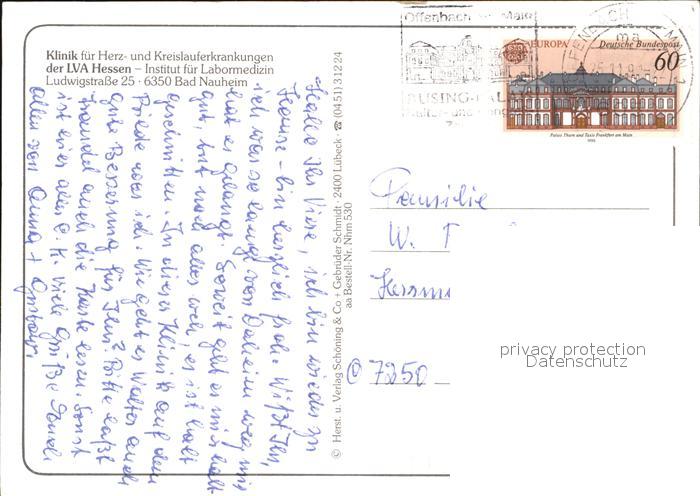 Klinik für Herz- und Kreislauferkrankungen
der LVA Hessen – Institut für Labormedizin
Ludwigstraße 25 · 6350 Bad Nauheim
Offenbach am Main
EUROPA
Deutsche Bundespost
60
Palais Thurn und Taxis Frankfurt am Main
"Hallo Ihr Viere, ich bin wieder zu
Hause - bin herzlich froh. Wißt Ihr,
ich war so lange von Daheim weg, mir
hat es gelangt. Soweit geht es mir halt
gut, tut noch alles weh, es ist halt
geschnitten. In dieser Klinik auf dem
Bilde war ich. Wie geht es Walter auch
gute Besserung für Ihn? Bitte laßt
auch die Karte lesen. Sonst
ist hier alles o. k. Viele Grüße Euch
allen von Anna +
© Herst. u. Verlag Schöning & Co + Gebrüder Schmidt · 2400 Lübeck · ☎ (0451) 31224
aa Bestell-Nr. Nhm 530
Familie
W.
© 7250
privacy protection
Datenschutz